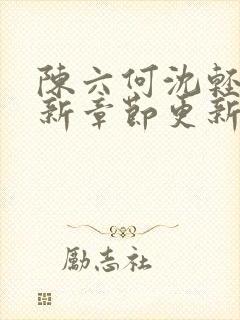 陳六何沈輕
新章節更新
勵志社